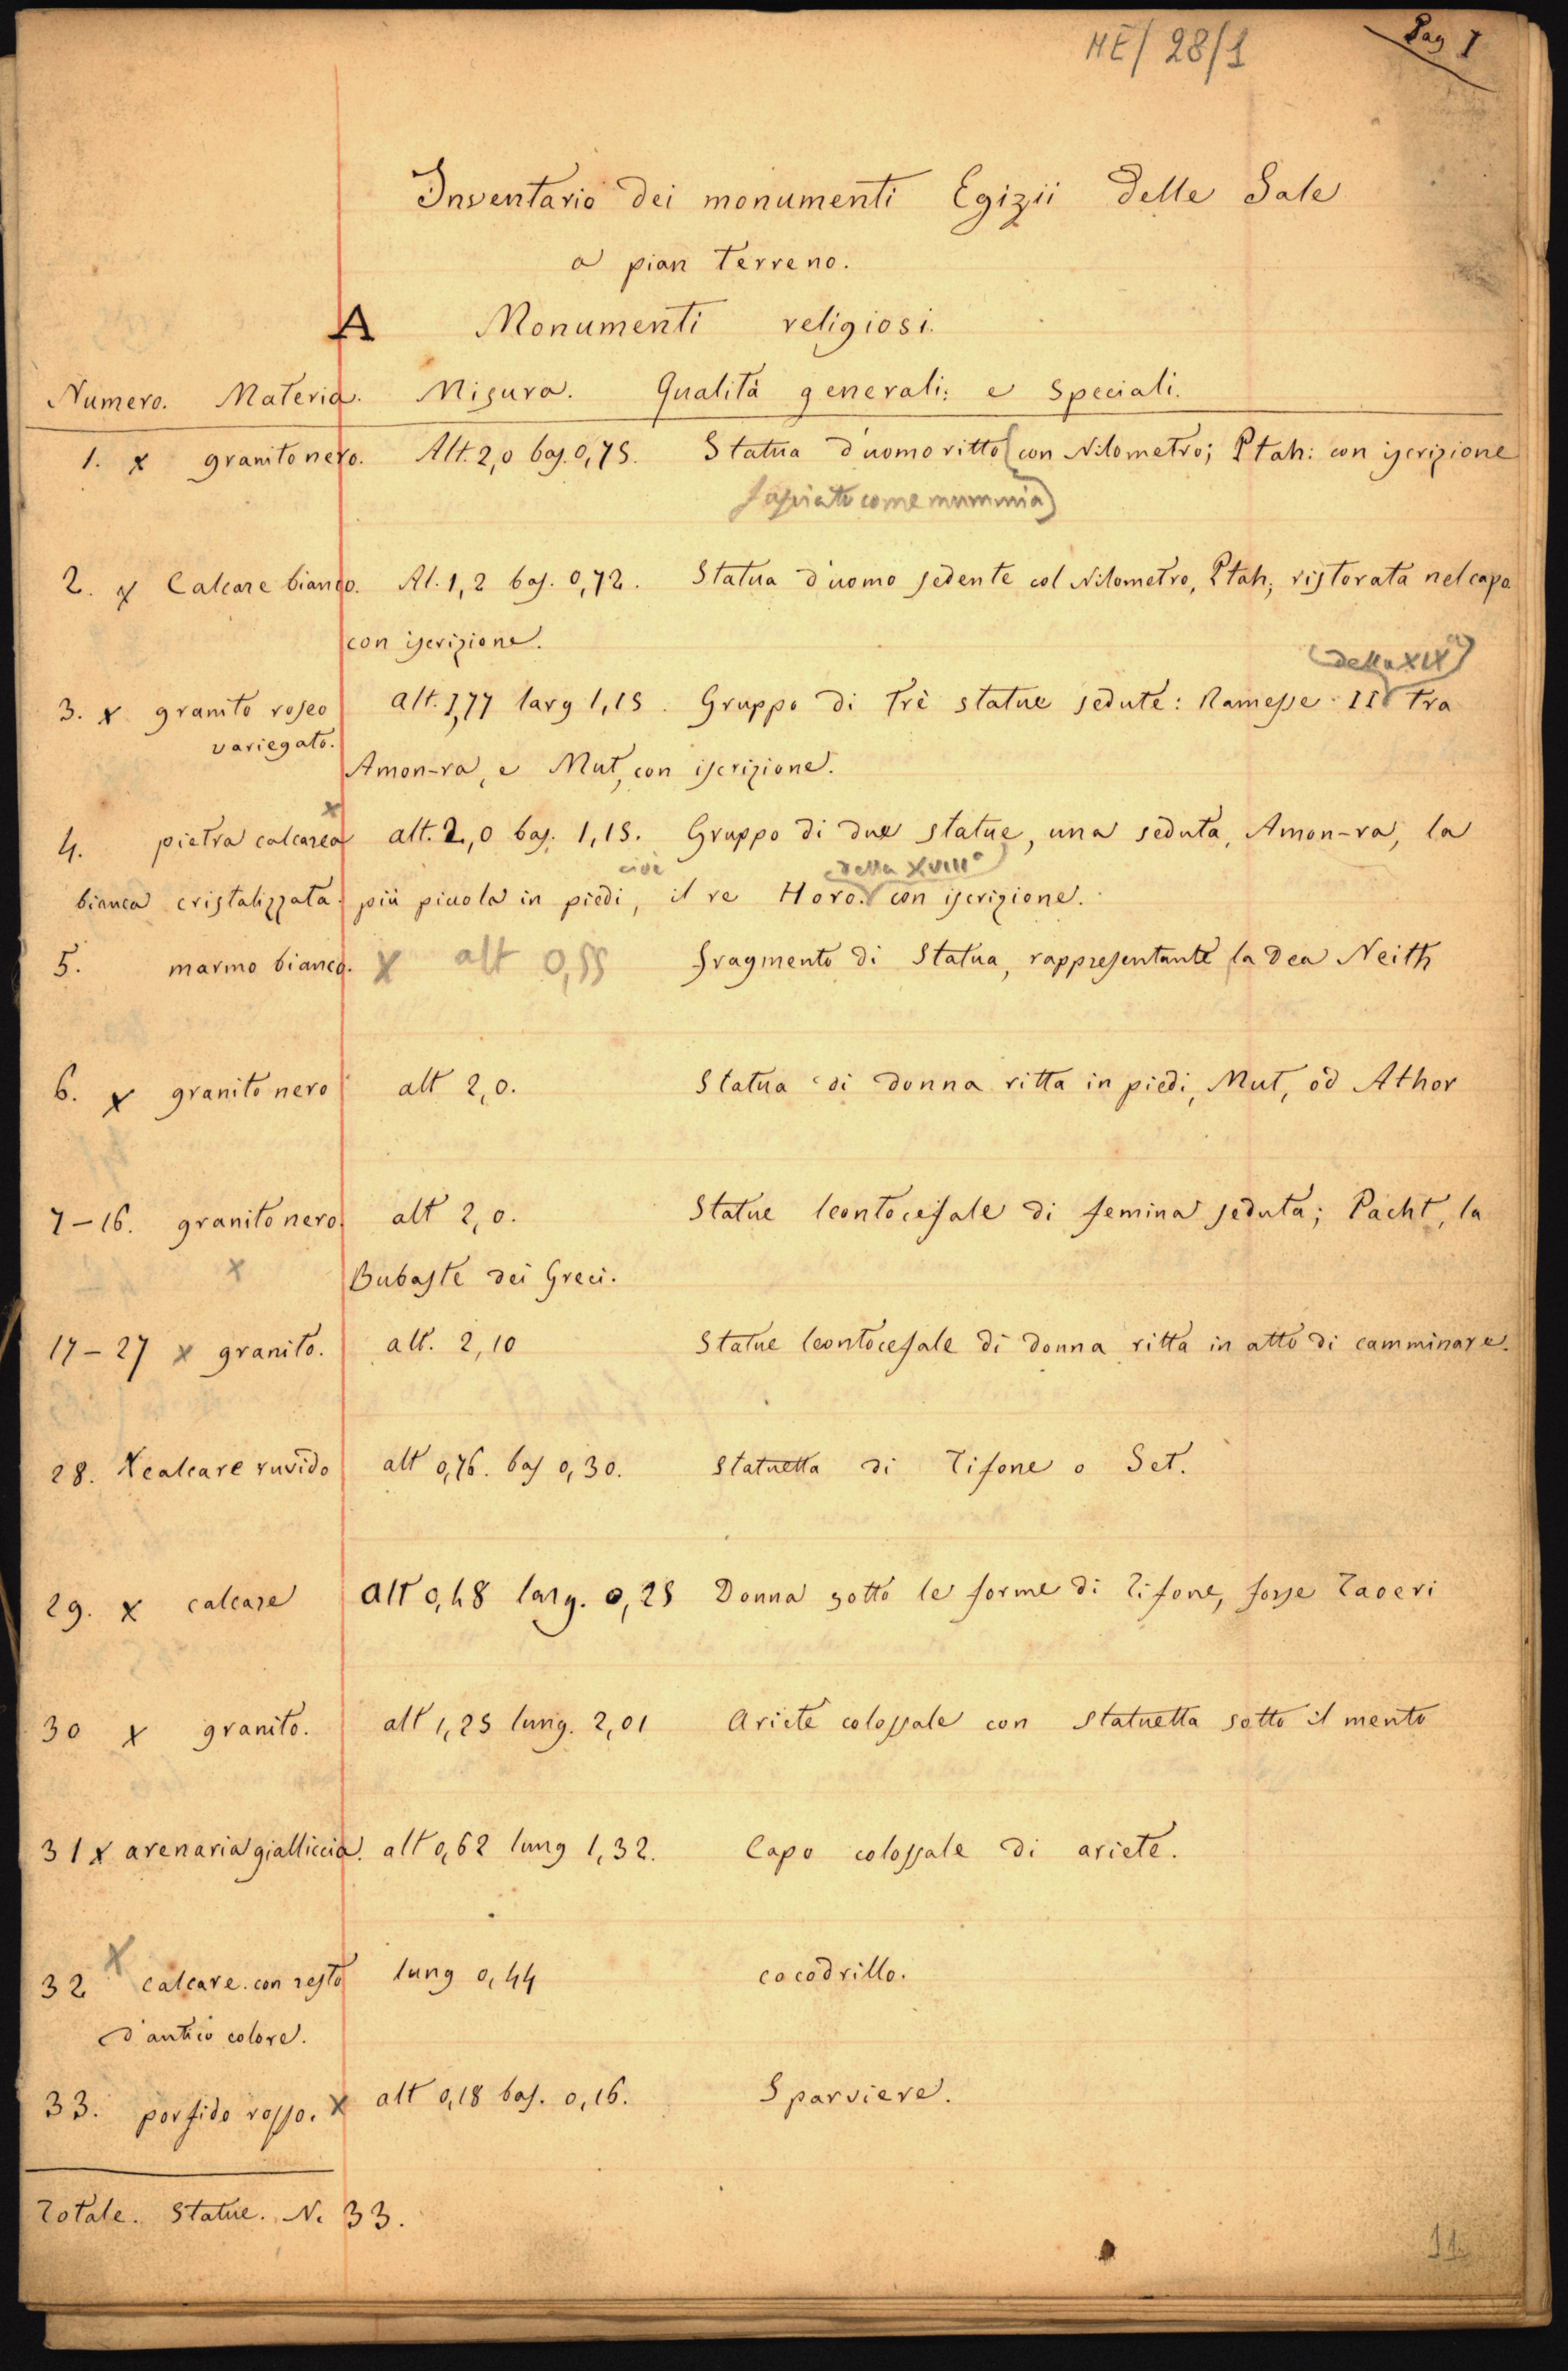 ME/28/1
Pag 1
Inventario dei monumenti Egizii delle Sale
a pian terreno.
A Monumenti religiosi.
Numero. Materia. Misura. Qualità generali: e speciali.
1. x granito nero. Alt. 2,0 bas. 0,75. Statua d'uomo ritto (con Nilometro; Ptah: con iscrizione
fasciato come mummia)
2. x Calcare bianco. Al. 1,2 bas. 0,72. Statua d'uomo sedente col Nilometro, Ptah; ristorata nel capo
con iscrizione.
(della XIXa)
3. x granito roseo alt. 1,77 larg 1,15. Gruppo di trè statue sedute: Ramesse II tra
variegato.
Amon-ra, e Mut, con iscrizione.
x
4. pietra calcarea alt. 2,0 bas. 1,15. Gruppo di due statue, una seduta, Amon-ra, la
cioè (della XVIIIa)
bianca cristalizzata. più picola in piedi, il re Horo. con iscrizione.
5. marmo bianco. x alt 0,55 Fragmento di Statua, rappresentante la Dea Neith
6. x granito nero alt 2,0. Statua di donna ritta in piedi, Mut, od Athor
7-16. granito nero. alt 2,0. Statue leontocefale di femina seduta; Pacht, la
x Bubaste dei Greci.
17-27 x granito. alt. 2,10 Statue leontocefale di donna ritta in atto di camminare.
28. x calcare ruvido alt 0,76. bas 0,30. Statuetta di Tifone o Set.
29. x calcare alt 0,48 larg. 0,25 Donna sotto le forme di Tifone, forse Taoeri
30 x granito. alt 1,25 lung. 2,01 Ariete colossale con statuetta sotto il mento
31 x arenaria gialliccia. alt 0,62 lung 1,32. Capo colossale di ariete.
x
32 calcare con resto lung 0,44 cocodrillo.
d'antico colore.
33. porfido rosso. x alt 0,18 bas. 0,16. Sparviere.
Totale. Statue. N. 33.
11